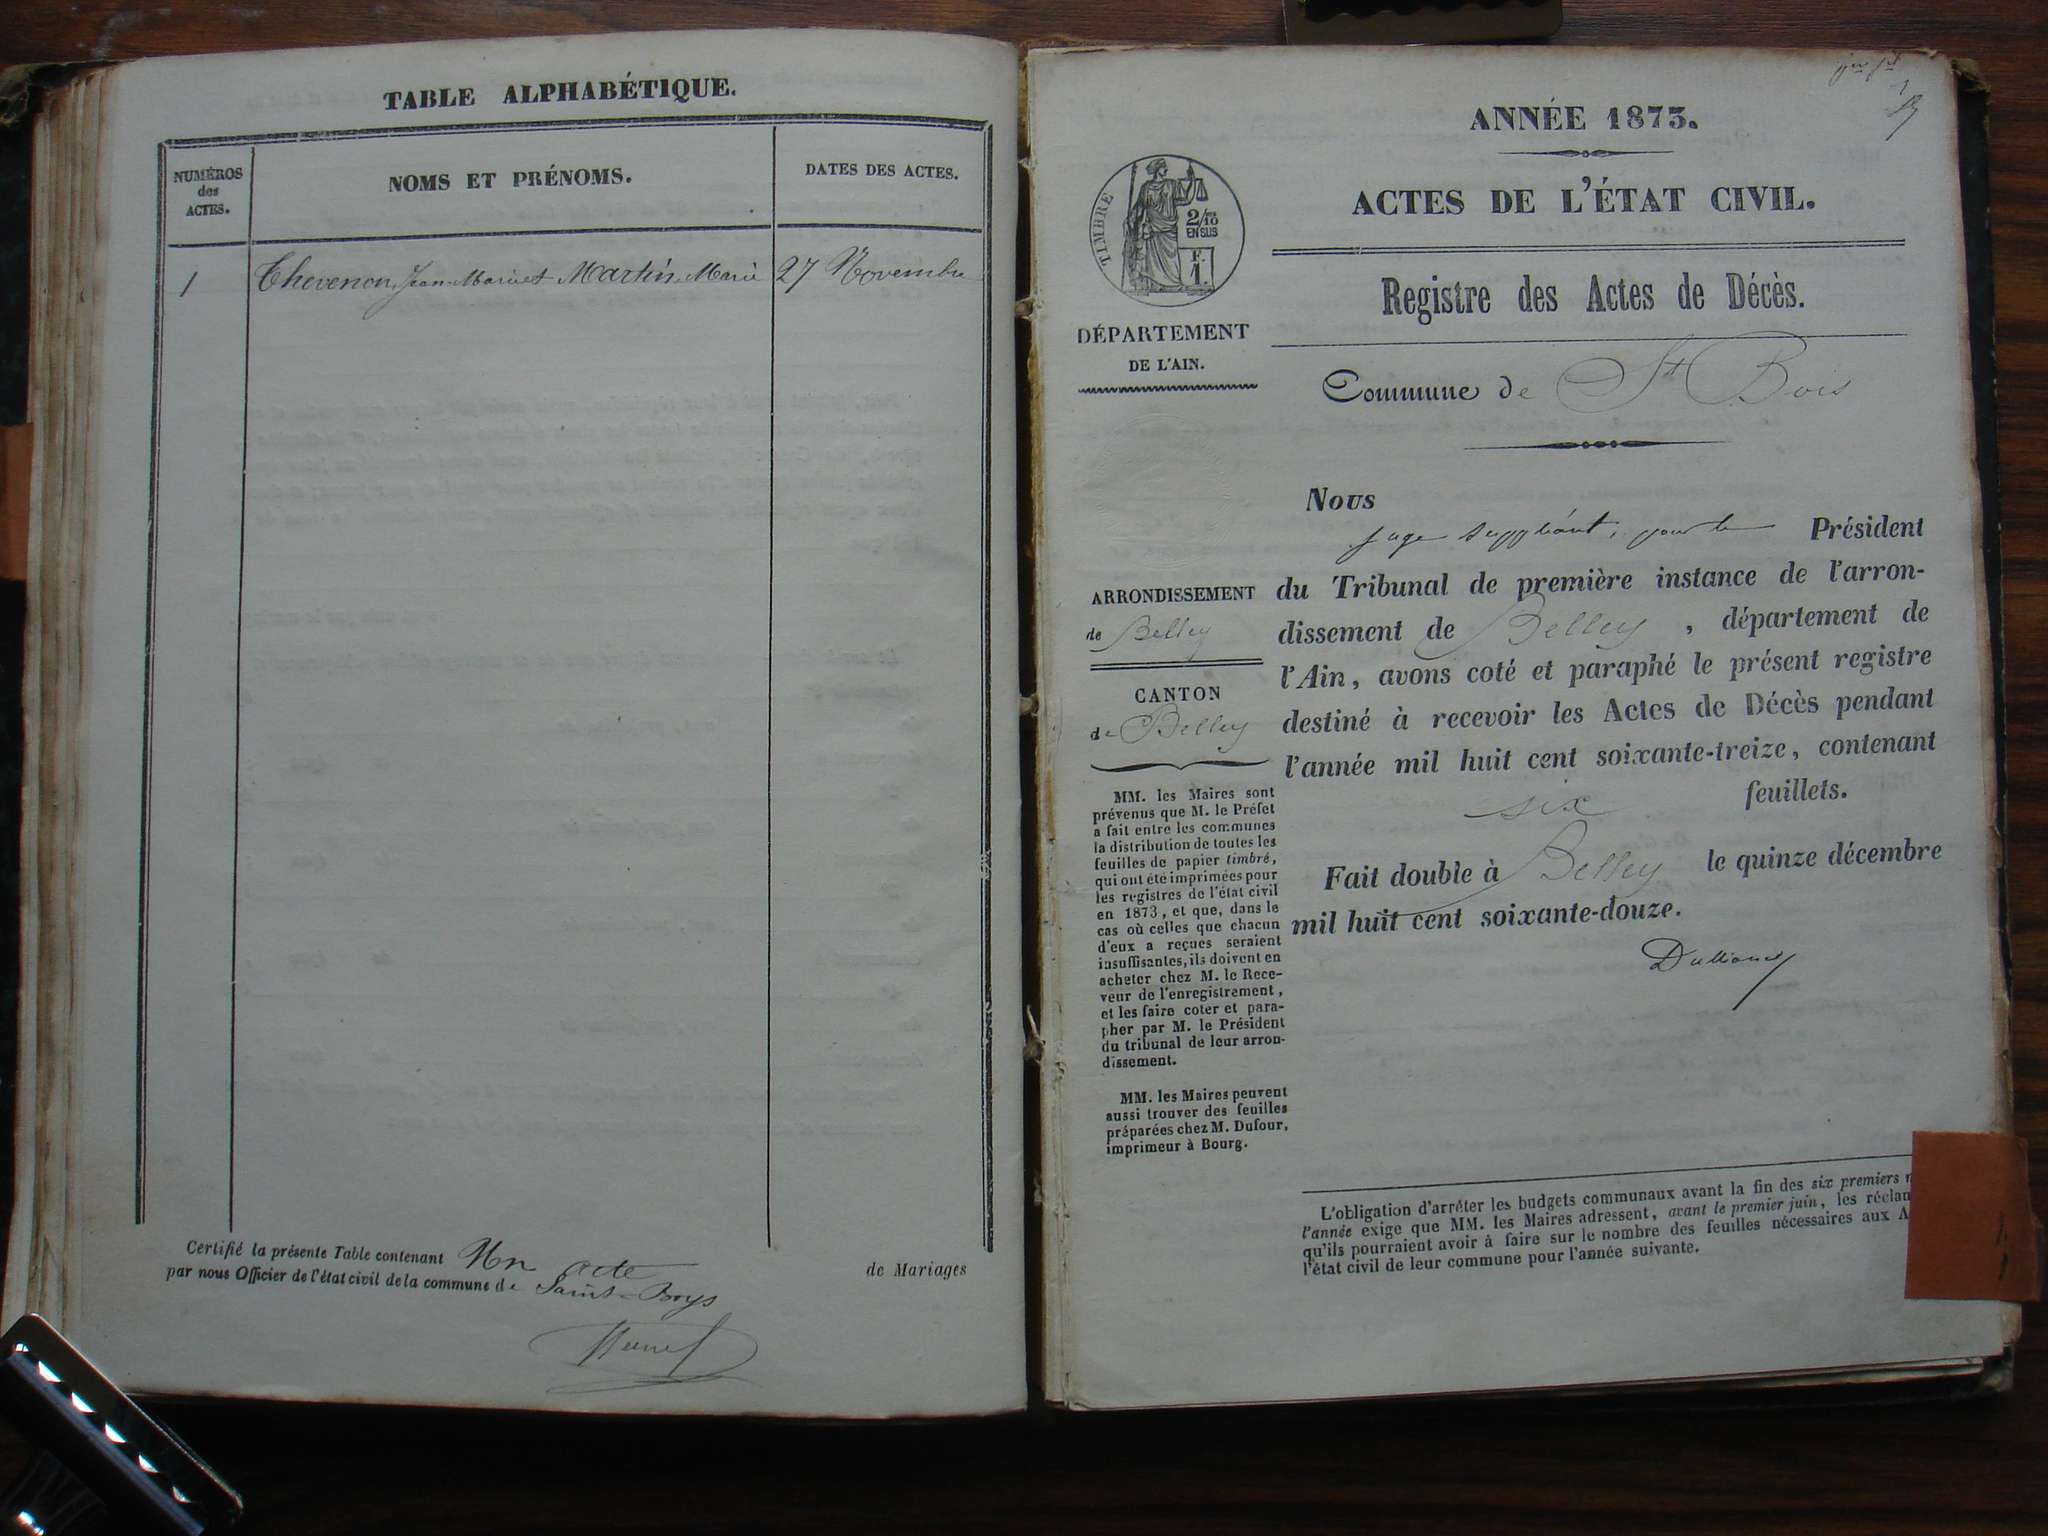 TABLE ALPHABÉTIQUE.
NUMÉROS
des
ACTES.
NOMS ET PRÉNOMS.
DATES DES ACTES.
1 Thevenon, Jean-Marie et Martin Marie 27 Novembre
Certifié la présente Table contenant Un acte de Mariages
par nous Officier de l'état civil de la commune de Saint-Boys
ANNÉE 1873.
ACTES DE L'ÉTAT CIVIL.
TIMBRE
2/10
EN SUS
F.
1.
Registre des Actes de Décès.
DÉPARTEMENT
DE L'AIN.
Commune de St Bois
Nous
juge suppléant, pour le Président
du Tribunal de première instance de l'arron-
dissement de Belley, département de
l'Ain, avons coté et paraphé le présent registre
destiné à recevoir les Actes de Décès pendant
l'année mil huit cent soixante-treize, contenant
six feuillets.
Fait double à Belley le quinze décembre
mil huit cent soixante-douze.
ARRONDISSEMENT
de Belley
CANTON
de Belley
MM. les Maires sont
prévenus que M. le Préfet
a fait entre les communes
la distribution de toutes les
feuilles de papier timbré,
qui ont été imprimées pour
les registres de l'état civil
en 1873, et que, dans le
cas où celles que chacun
d'eux a reçues seraient
insuffisantes, ils doivent en
acheter chez M. le Rece-
veur de l'enregistrement,
et les faire coter et para-
pher par M. le Président
du tribunal de leur arron-
dissement.
MM. les Maires peuvent
aussi trouver des feuilles
préparées chez M. Dufour,
imprimeur à Bourg.
L'obligation d'arrêter les budgets communaux avant la fin des six premiers
l'année exige que MM. les Maires adressent, avant le premier juin, les réclam
qu'ils pourraient avoir à faire sur le nombre des feuilles nécessaires aux A
l'état civil de leur commune pour l'année suivante.